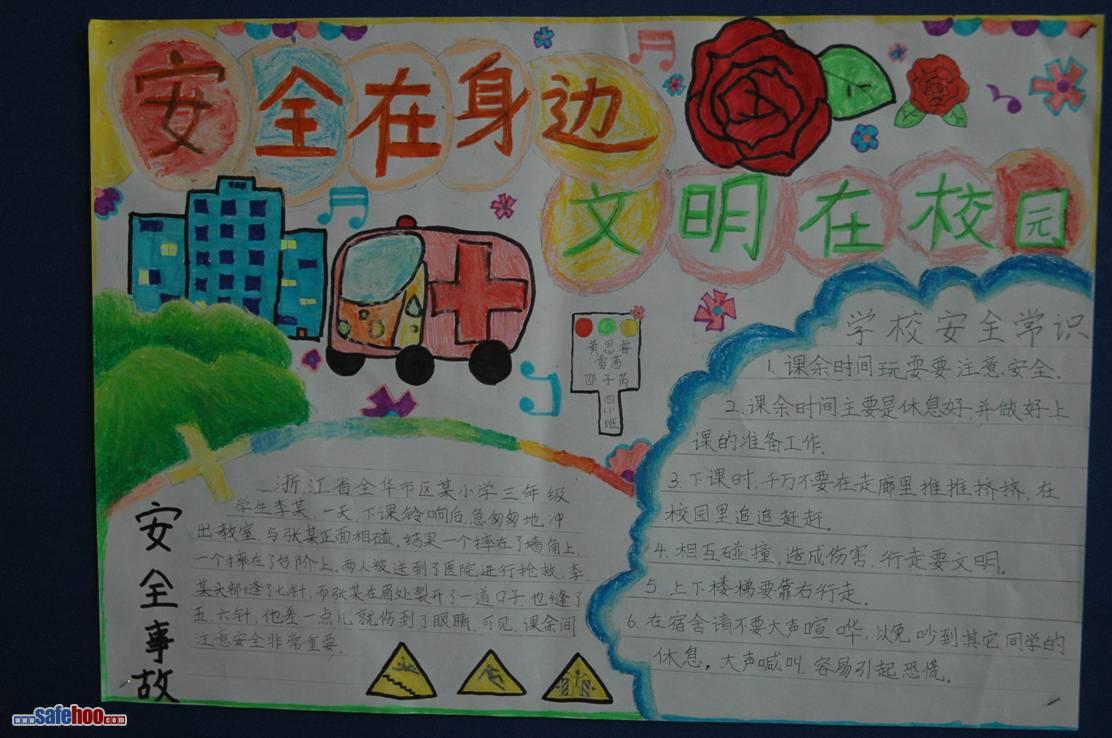 安全在身边
文明在校园
黄思梅
雷茜
邵子芮
四(1)班
学校安全常识
1.课余时间玩耍要注意安全.
2.课余时间主要是休息好.并做好上
课的准备工作.
3.下课时.千万不要在走廊里推推挤挤,在
校园里追追赶赶.
4.相互碰撞,造成伤害.行走要文明.
5.上下楼梯要靠右行走.
6.在宿舍请不要大声喧哗,以免吵到其它同学的
休息,大声喊叫.容易引起恐慌.
安全事故
浙江省金华市区某小学三年级
学生李某,一天,下课铃响后,急匆匆地冲
出教室,与张某正面相碰,结果一个摔在了墙角上,
一个摔在了台阶上,两人被送到了医院进行抢救.李
某头部缝了七针,而张某在眉处裂开了一道口子.也缝了
五、六针,他差一点儿就伤到了眼睛.可见,课余间
注意安全非常重要.
www.safehoo.com